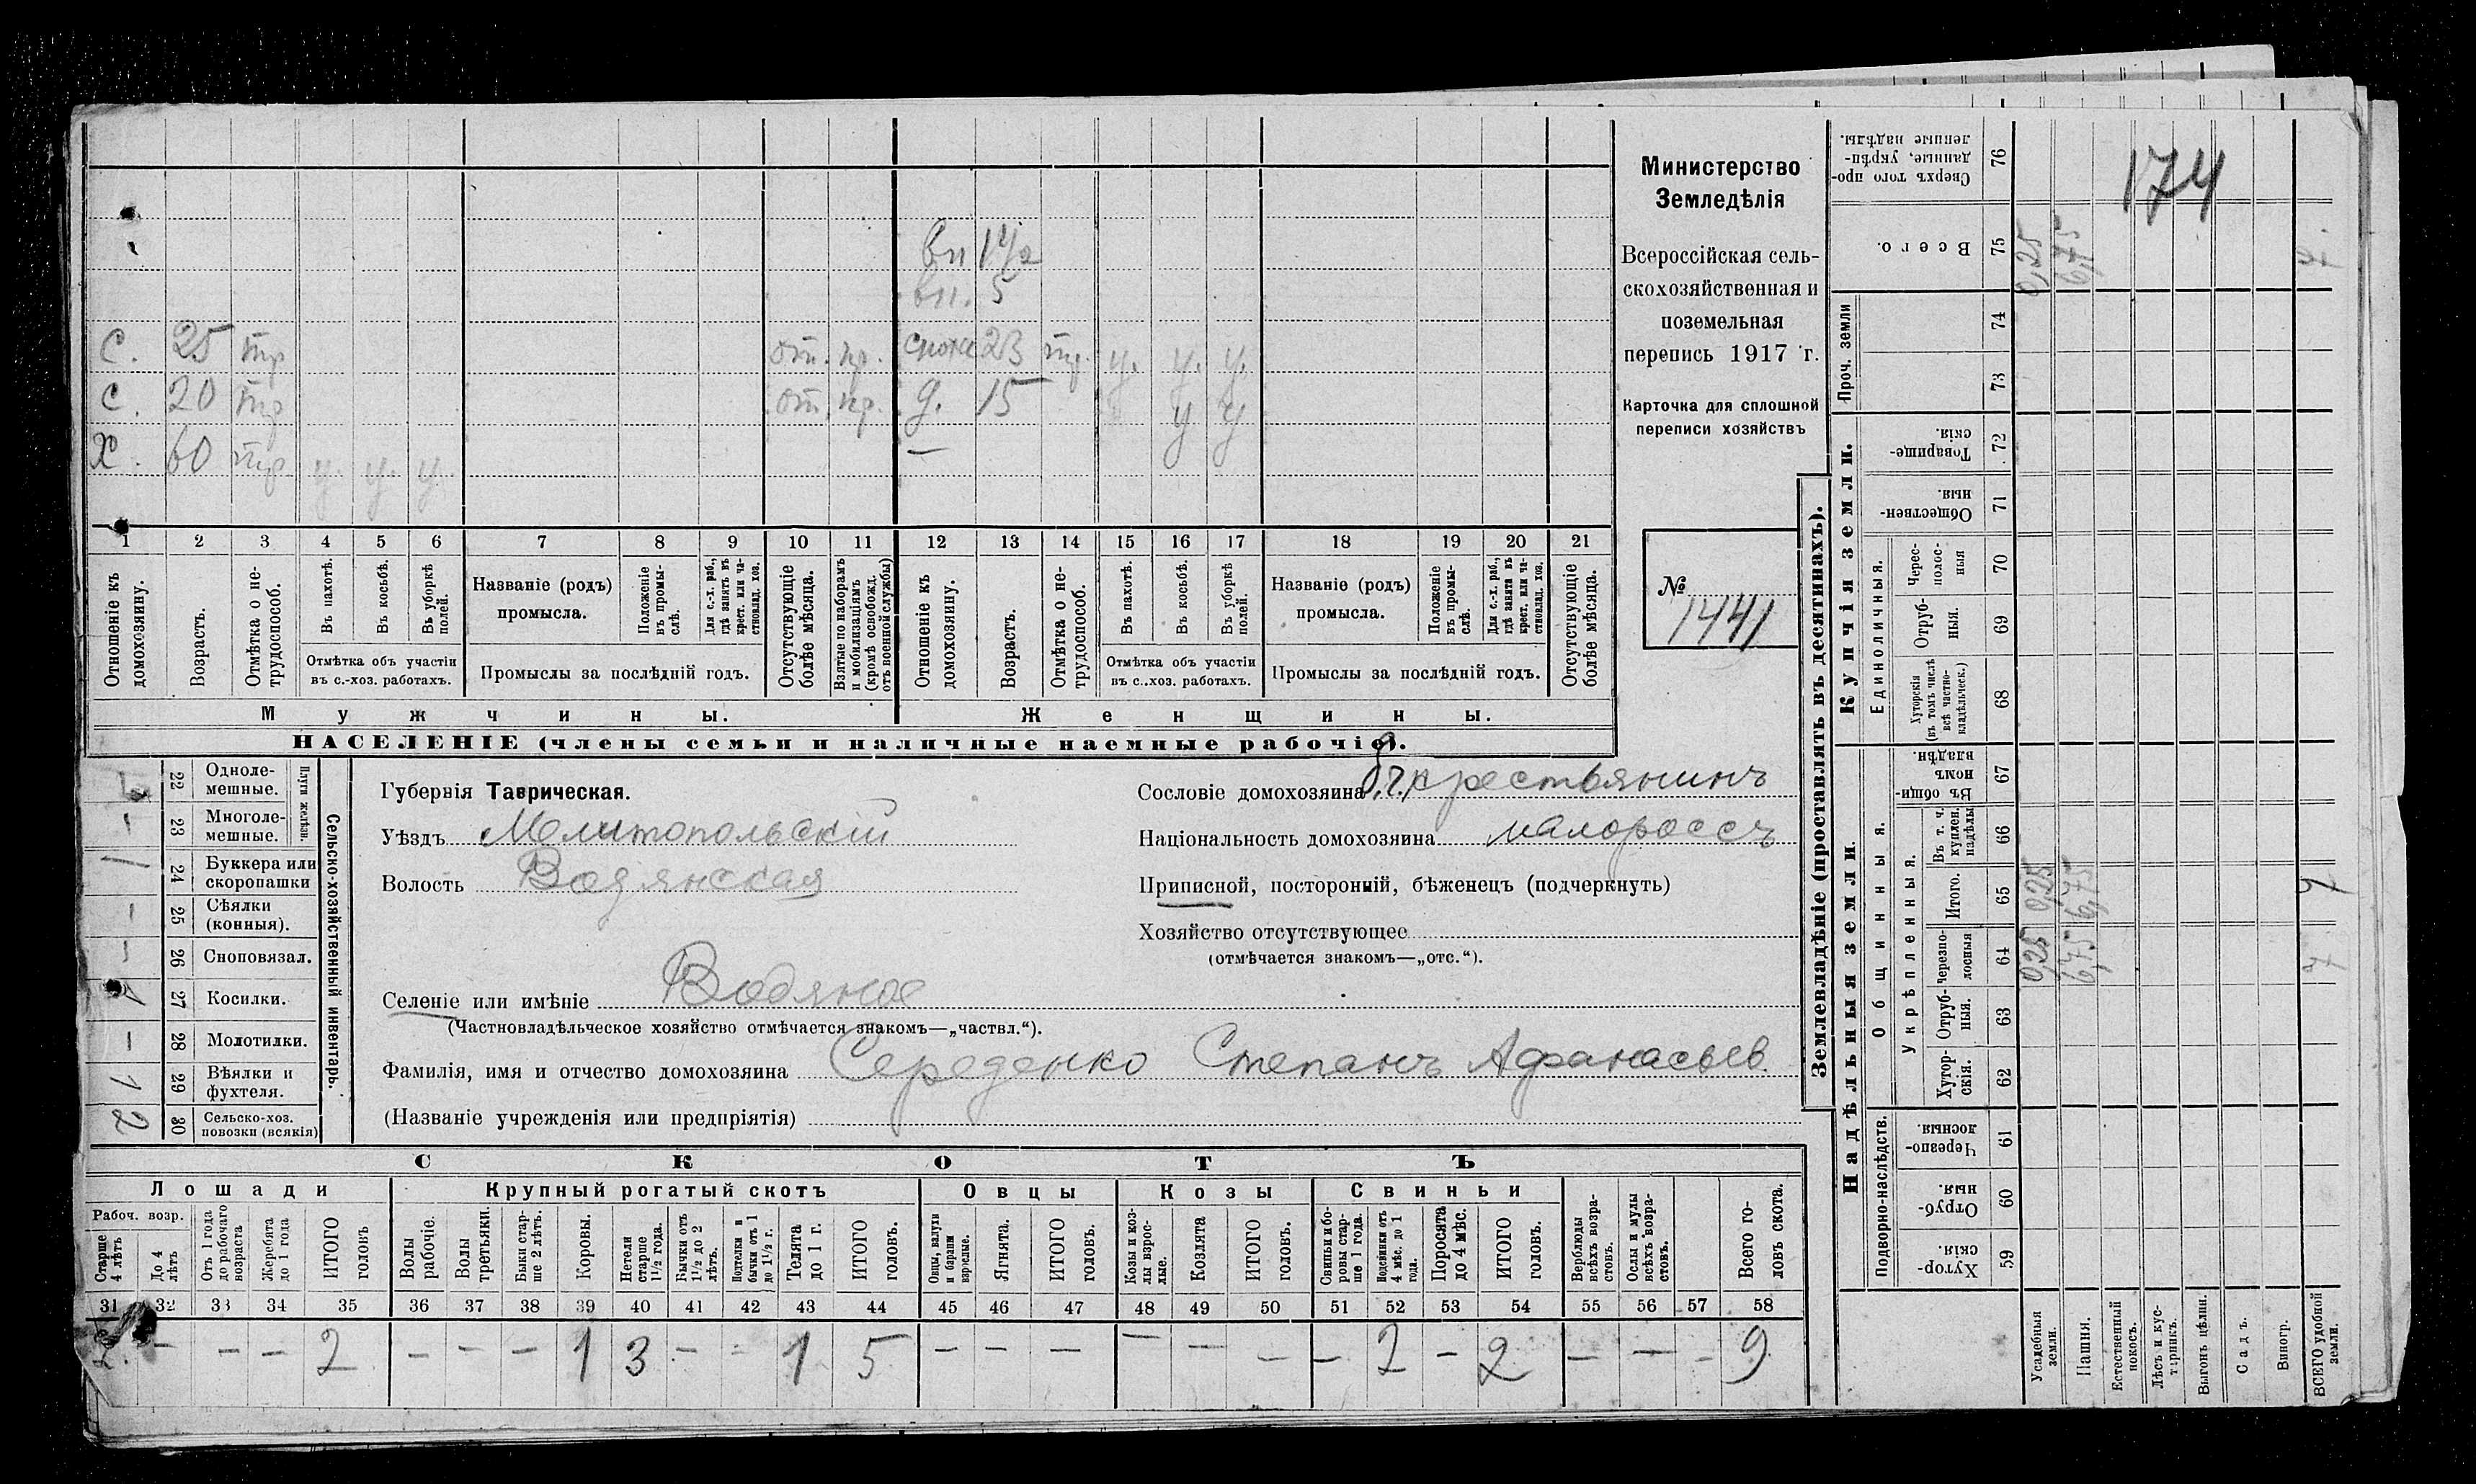 174
Министерство
Земледѣлія
Всероссійская сель-
скохозяйственная и
поземельная
перепись 1917 г.
Карточка для сплошной
переписи хозяйствъ
№
1441
вн 1 1/2
вн. 5
С. 25 тр от. пр. сноха 23 тр. у. у. у.
С. 20 тр от. пр. д. 15 у у
Х. 60 тр у. у. у. —
1 2 3 4 5 6 7 8 9 10 11 12 13 14 15 16 17 18 19 20 21
Отношеніе къ домохозяину.
Возрастъ.
Отмѣтка о не-трудоспособ.
Въ пахотѣ.
Въ косьбѣ.
Въ уборкѣ полей.
Отмѣтка объ участіи въ с.-хоз. работахъ.
Названіе (родъ) промысла.
Положеніе въ промы-слѣ.
Для с.-х. раб., гдѣ занятъ въ крест. или ча-стновлад. хоз.
Промыслы за послѣдній годъ.
Отсутствующіе болѣе мѣсяца.
Взятые по наборамъ и мобилизаціямъ (кромѣ освобожд. отъ военной службы)
Отношеніе къ домохозяину.
Возрастъ.
Отмѣтка о не-трудоспособ.
Въ пахотѣ.
Въ косьбѣ.
Въ уборкѣ полей.
Отмѣтка объ участіи въ с.-хоз. работахъ.
Названіе (родъ) промысла.
Положеніе въ промы-слѣ.
Для с.-х. раб., гдѣ занята въ крест. или ча-стновлад. хоз.
Промыслы за послѣдній годъ.
Отсутствующіе болѣе мѣсяца.
Мужчины. Женщины.
НАСЕЛЕНІЕ (члены семьи и наличные наемные рабочіе).
Сельско-хозяйственный инвентарь.
Плуги желѣзн.
22 Одноле-мешные.
— 23 Многоле-мешные.
1 24 Буккера или скоропашки
— 25 Сѣялки (конныя).
— 26 Сноповязал.
1 27 Косилки.
— 28 Молотилки.
1 29 Вѣялки и фухтеля.
2 30 Сельско-хоз. повозки (всякія)
Губернія Таврическая.
Уѣздъ Мелитопольскій
Волость Водянская
Селеніе или имѣніе Водяное
(Частновладѣльческое хозяйство отмѣчается знакомъ—„частвл.“).
Фамилія, имя и отчество домохозяина Середенко Степанъ Афанасьев.
(Названіе учрежденія или предпріятія)
Сословіе домохозяина крестьянинъ
Національность домохозяина малороссъ
Приписной, посторонній, бѣженецъ (подчеркнуть)
Хозяйство отсутствующее
(отмѣчается знакомъ—„отс.“).
СКОТЪ
Лошади Крупный рогатый скотъ Овцы Козы Свиньи
Рабоч. возр.
Старше 4 лѣтъ
До 4 лѣтъ
Отъ 1 года до рабочаго возраста
Жеребята до 1 года
ИТОГО головъ
Волы рабочіе.
Волы третьяки.
Быки стар-ше 2 лѣтъ.
Коровы.
Нетели старше 1 1/2 года.
Бычки отъ 1 1/2 до 2 лѣтъ.
Подтелки и бычки отъ 1 до 1 1/2 г.
Телята до 1 г.
ИТОГО головъ.
Овцы, валухи и бараны взрослые.
Ягнята.
ИТОГО головъ.
Козы и коз-лы взрос-лые.
Козлята
ИТОГО головъ.
Свиньи и бо-ровы стар-ше 1 года.
Подсвинки отъ 4 мѣс. до 1 года.
Поросята до 4 мѣс.
ИТОГО головъ.
Верблюды всѣхъ возра-стовъ.
Ослы и мулы всѣхъ возра-стовъ.
Всего го-ловъ скота.
31 32 33 34 35 36 37 38 39 40 41 42 43 44 45 46 47 48 49 50 51 52 53 54 55 56 57 58
2. — — — 2 — — — 1 3 — — 1 5 — — — — — — — 2 — 2 — — — 9
Землевладѣніе (проставлять въ десятинахъ).
Надѣльныя земли. Купчія земли. Проч. земли
Подворно-наслѣдств.
Общинныя.
Укрѣпленныя.
Единоличныя.
Сверхъ того про-данные, укрѣп-ленные надѣлы. 76
Всего. 75 0,25 6,75 7.
74
73
Товарище-скія. 72
Обществен-ныя. 71
Черес-полос-ныя 70
Отруб-ныя. 69
Хуторскія (въ томъ числѣ всѣ частно-владѣльческ.) 68
Въ общи-номъ владѣн. 67
Въ т. ч. куплен. надѣлы 66
Итого. 65 0,25 6,75 7
Черезпо-лосныя 64 0,25 6,75 7
Отруб-ныя. 63
Хутор-скія. 62
Черезпо-лосныя. 61
Отруб-ныя. 60
Хутор-скія. 59
Усадебныя земли.
Пашня.
Естественный покосъ.
Лѣсъ и кус-тарникъ.
Выгонъ цѣлин.
Садъ.
Виногр.
ВСЕГО удобной земли.